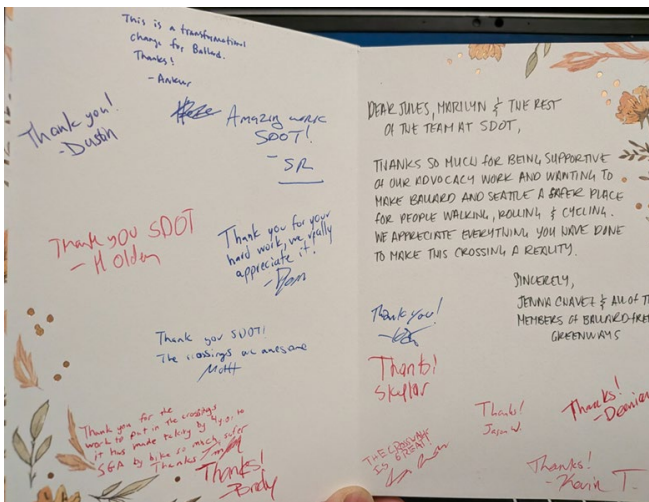 This is a transformational
change for Ballard.
Thanks!
- Ankur
Thank you!
- Dustin
Amazing work
SDOT!
- SR
Thank you SDOT
- Holden
Thank you for your
hard work, we really
appreciate it!
- Dom
Thank you SDOT!
The crossings are awesome
Matt
Thank you for the
work to put in the crossings
it has made taking my 4 y.o. to
SEA by bike so much safer
Thanks
Thanks!
Brody
DEAR JULES, MARILYN & THE REST
OF THE TEAM AT SDOT,
THANKS SO MUCH FOR BEING SUPPORTIVE
OF OUR ADVOCACY WORK AND WANTING TO
MAKE BALLARD AND SEATTLE A SAFER PLACE
FOR PEOPLE WALKING, ROLLING & CYCLING.
WE APPRECIATE EVERYTHING YOU HAVE DONE
TO MAKE THIS CROSSING A REALITY.
SINCERELY,
JENNA CHAVEZ & ALL OF T
MEMBERS OF BALLARD-FRE
GREENWAYS
Thank you!
Thanks!
Skylar
Thanks!
Jason W.
Thanks!
- Damien
THE CROSSWALK
IS GREAT!
Thanks!
- Kevin T.